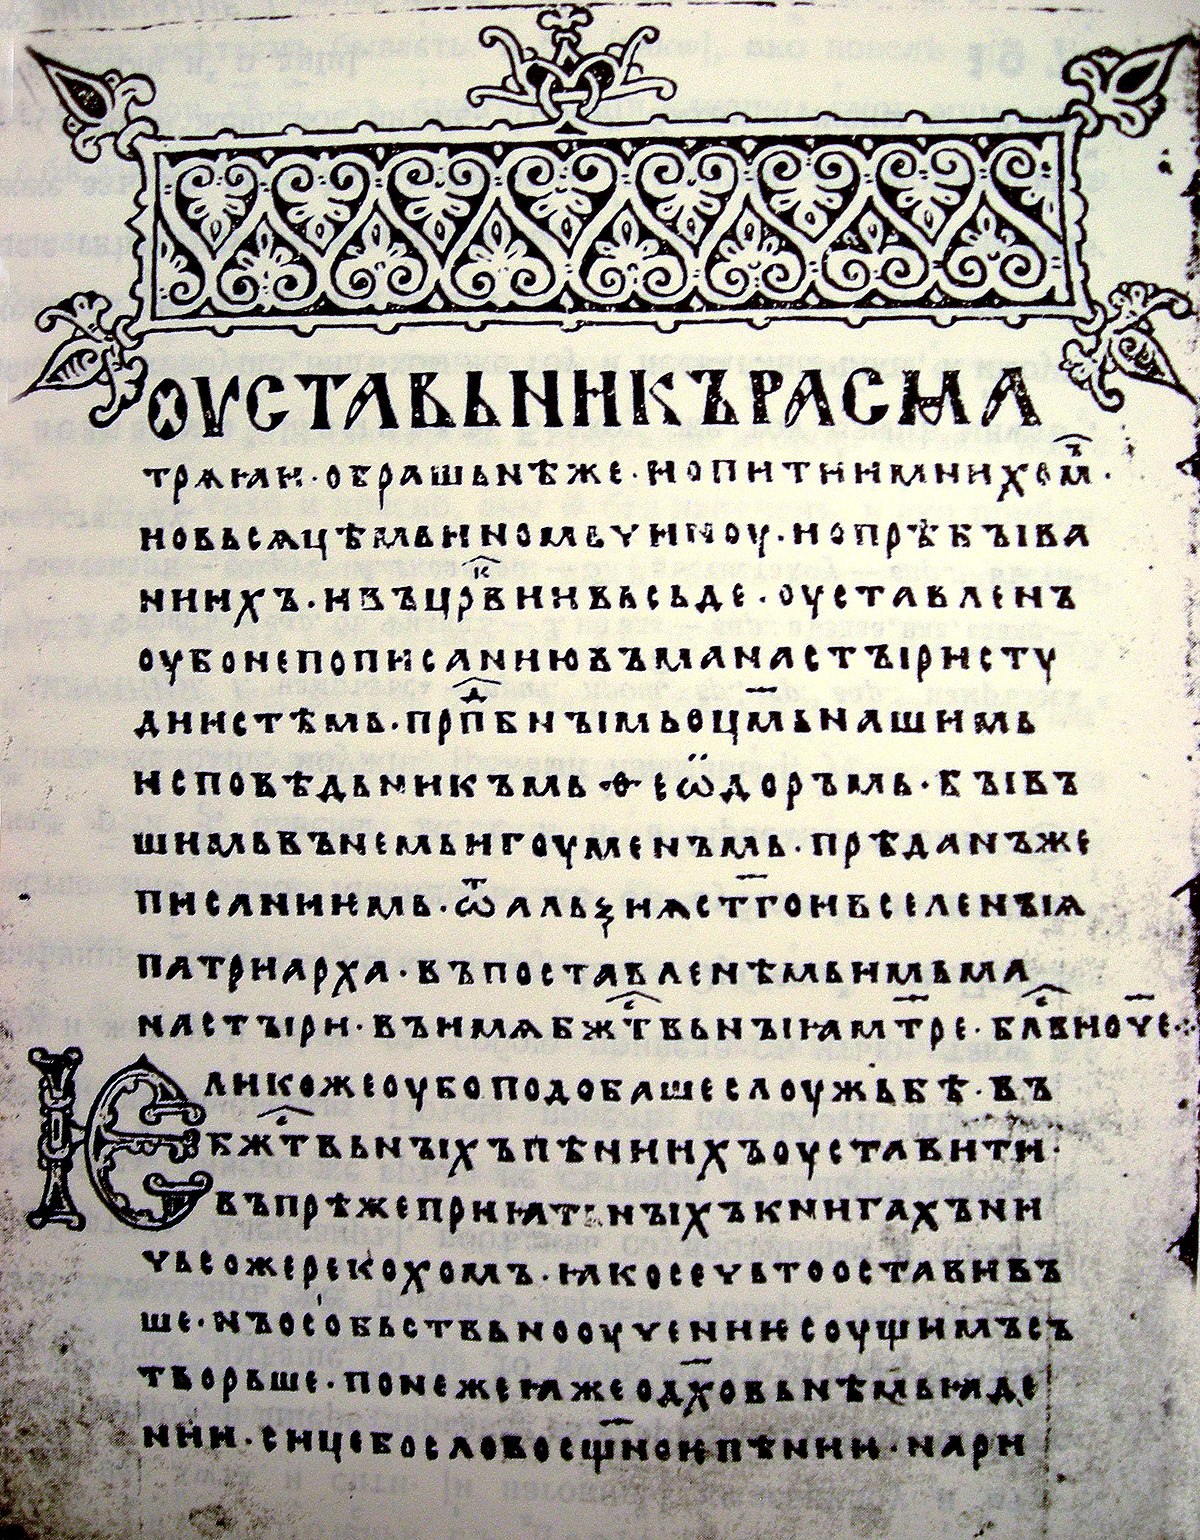 ОУСТАВЬНИКЪРАСМА
трѧꙗи·обрашьнѣже·ипитиимнихом̑ъ·
новьсѧцѣмьиномьчиноу·ипрѣбꙑва
ниихъ·ивъцр҃квиивьсьде·оуставленъ
оубонепописаниювъманастꙑристу
диистѣмь·прпдⷣбнꙑмьоцм҃ьнашимь
исповѣдьникъмьѳеѡдоръмь·бꙑвъ
шимьвънемьигоуменъмь·прѣданъже
писаниимь·ѿальѯиꙗст҃гоивселенꙑꙗ
патриарха·въпоставленѣмьимьма
настꙑри·въимѧбжⷭ҇твьнꙑꙗмт҃ре·блⷭ҇вноч҃е·
Ѥликожеоубоподобашеслоужьбѣ·въ
бжⷭ҇твьнꙑхъпѣниихъоуставити·
въпрѣжеприꙗтьнꙑхъкнигахъни
чьсожерекохомъ·ꙗкосечьтооставивъ
ше·нъособьствьнооучениѥсоущимъсъ
творьше·понежеꙗжеодх҃овьнѣмьꙗде
нии·сицебословосщ҃ноипѣнии·нари